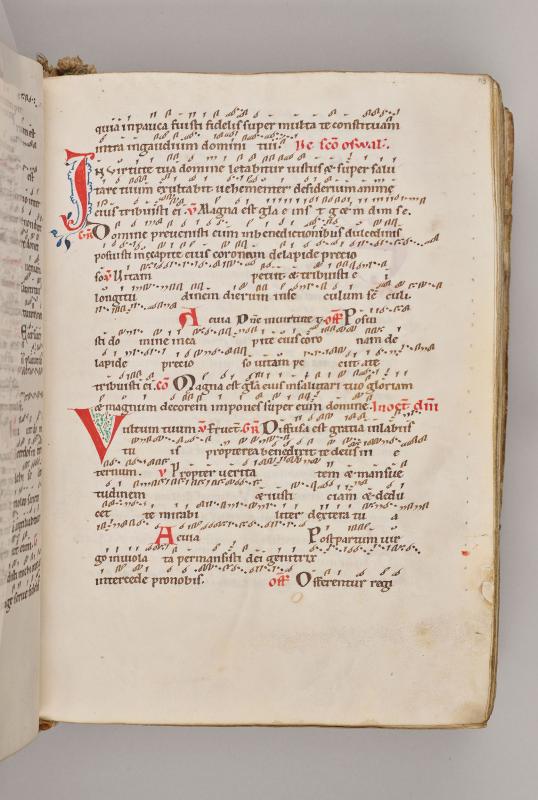 quia inpauca fuisti fidelis super multa te constituam
intra ingaudium domini tui. De sco oswal.
In virtute tua domine letabitur iustus & super salu
tare tuum exultabit uehementer desiderium anime
eius tribuisti ei. V Magna est gla e ins t g & m dim s e.
GR Domine preuenisti eum inbenedictionibus dulcedinis
posuisti incapite eius coronam delapide precio
so. V Uitam petiit & tribuisti e i
longitu dinem dierum inse culum se culi
A euia Dne inuirtute t. off Posui
sti do mine inca pite eius coro nam de
lapide precio so uitam pe ciit a te
tribuisti ei. CO Magna est gla eius insalutari tuo gloriam
& magnum decorem impones super eum domine.
Vultum tuum V Eruct. GR Diffusa est gratia inlabiis
tu is propterea benedixit te deus in e
ternum. V Propter uerita tem & mansue
tudinem & iusti ciam & dedu
cet te mirabi liter dextera tu a
A euia Post partum uir
go inuiola ta permansisti dei genitrix
intercede pronobis. off Offerentur regi